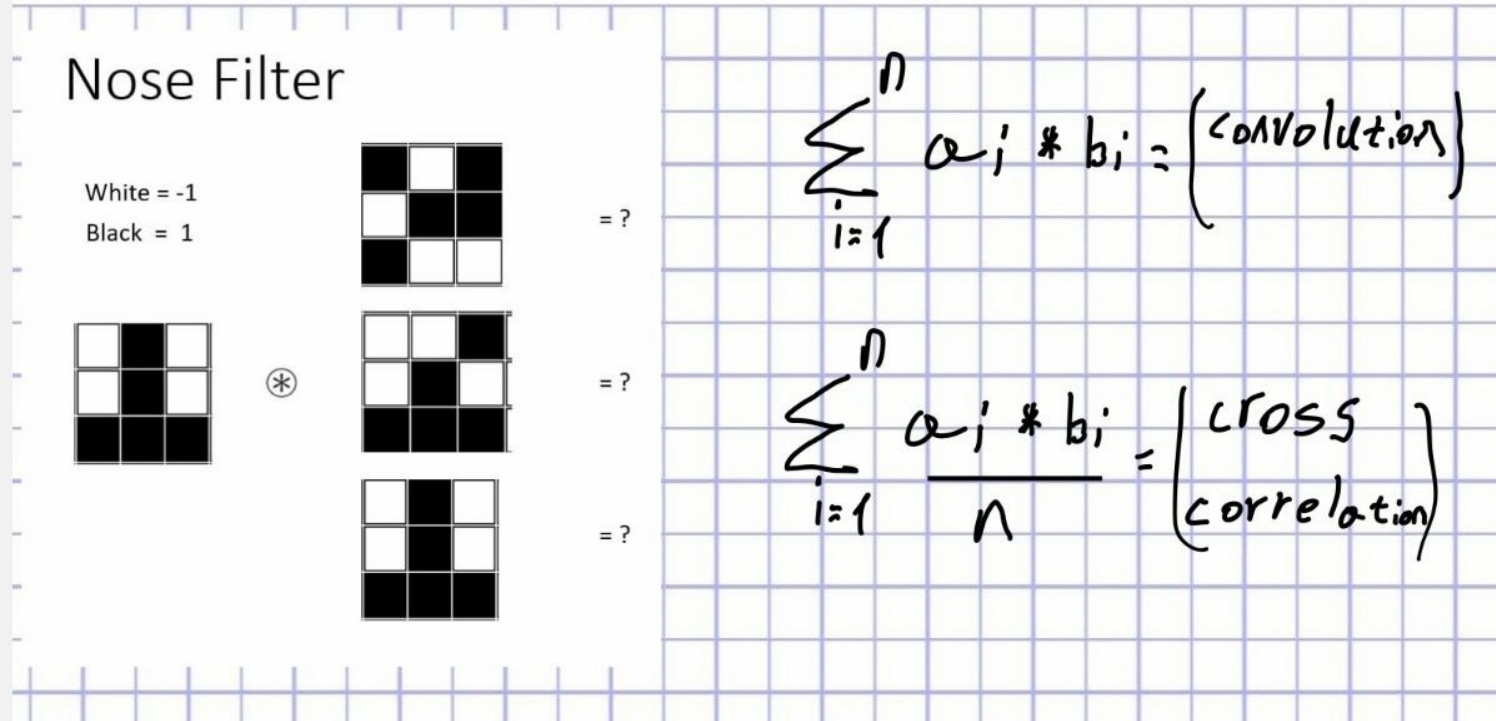 Nose Filter
White = -1
Black = 1
= ?
⊛
= ?
= ?
n
∑ ai * bi = (convolution)
i=1
n
∑ ai * bi = (cross
i=1 n correlation)